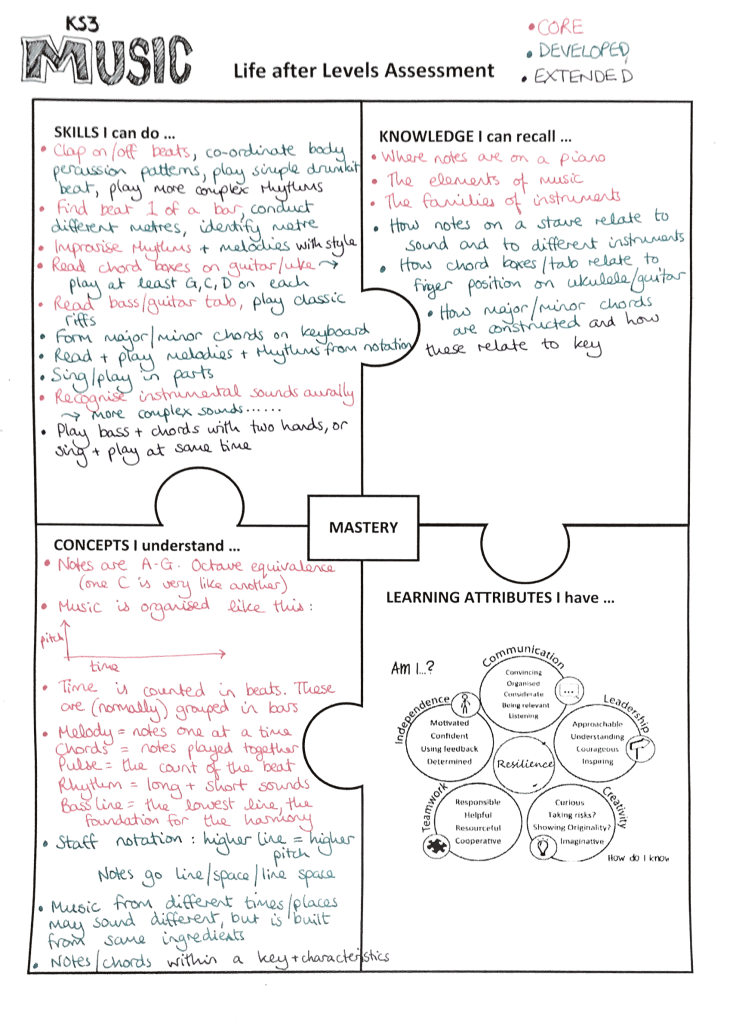 KS3
MUSIC
Life after Levels Assessment
• CORE
• DEVELOPED
• EXTENDED
SKILLS I can do ...
• Clap on/off beats, co-ordinate body
percussion patterns, play simple drumkit
beat, play more complex rhythms
• Find beat 1 of a bar, conduct
different metres, identify metre
• Improvise rhythms + melodies with style
• Read chord boxes on guitar/uke →
play at least G, C, D on each
• Read bass/guitar tab, play classic
riffs
• Form major/minor chords on keyboard
• Read + play melodies + rhythms from notation
• Sing/play in parts
• Recognise instrumental sounds aurally
→ more complex sounds......
• Play bass + chords with two hands, or
sing + play at same time
KNOWLEDGE I can recall ...
• Where notes are on a piano
• The elements of music
• The families of instruments
• How notes on a stave relate to
sound and to different instruments
• How chord boxes/tab relate to
finger position on ukulele/guitar
• How major/minor chords
are constructed and how
these relate to key
MASTERY
CONCEPTS I understand ...
• Notes are A-G. Octave equivalence
(one C is very like another)
• Music is organised like this:
pitch
time
• Time is counted in beats. These
are (normally) grouped in bars
• Melody = notes one at a time
Chords = notes played together
Pulse = the count of the beat
Rhythm = long + short sounds
Bass line = the lowest line, the
foundation for the harmony
• Staff notation: higher line = higher
pitch
Notes go line/space/line space
• Music from different times/places
may sound different, but is built
from same ingredients
• Notes/chords within a key + characteristics
LEARNING ATTRIBUTES I have ...
Am I...?
Communication
Convincing
Organised
Considerate
Being relevant
Listening
...
Independence
Motivated
Confident
Using feedback
Determined
Leadership
Approachable
Understanding
Courageous
Inspiring
Resilience
Teamwork
Responsible
Helpful
Resourceful
Cooperative
Creativity
Curious
Taking risks?
Showing Originality?
Imaginative
How do I know